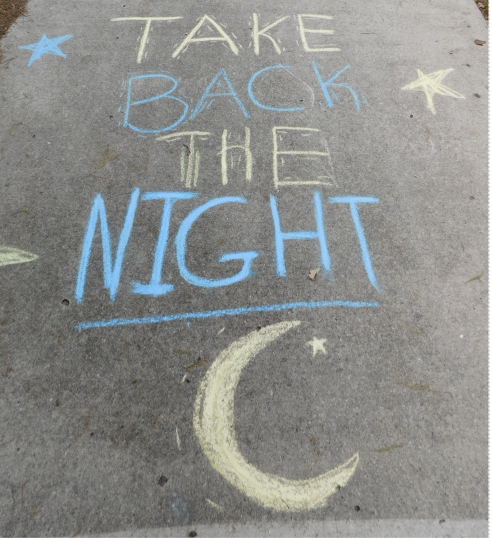 TAKE
BACK
THE
NIGHT